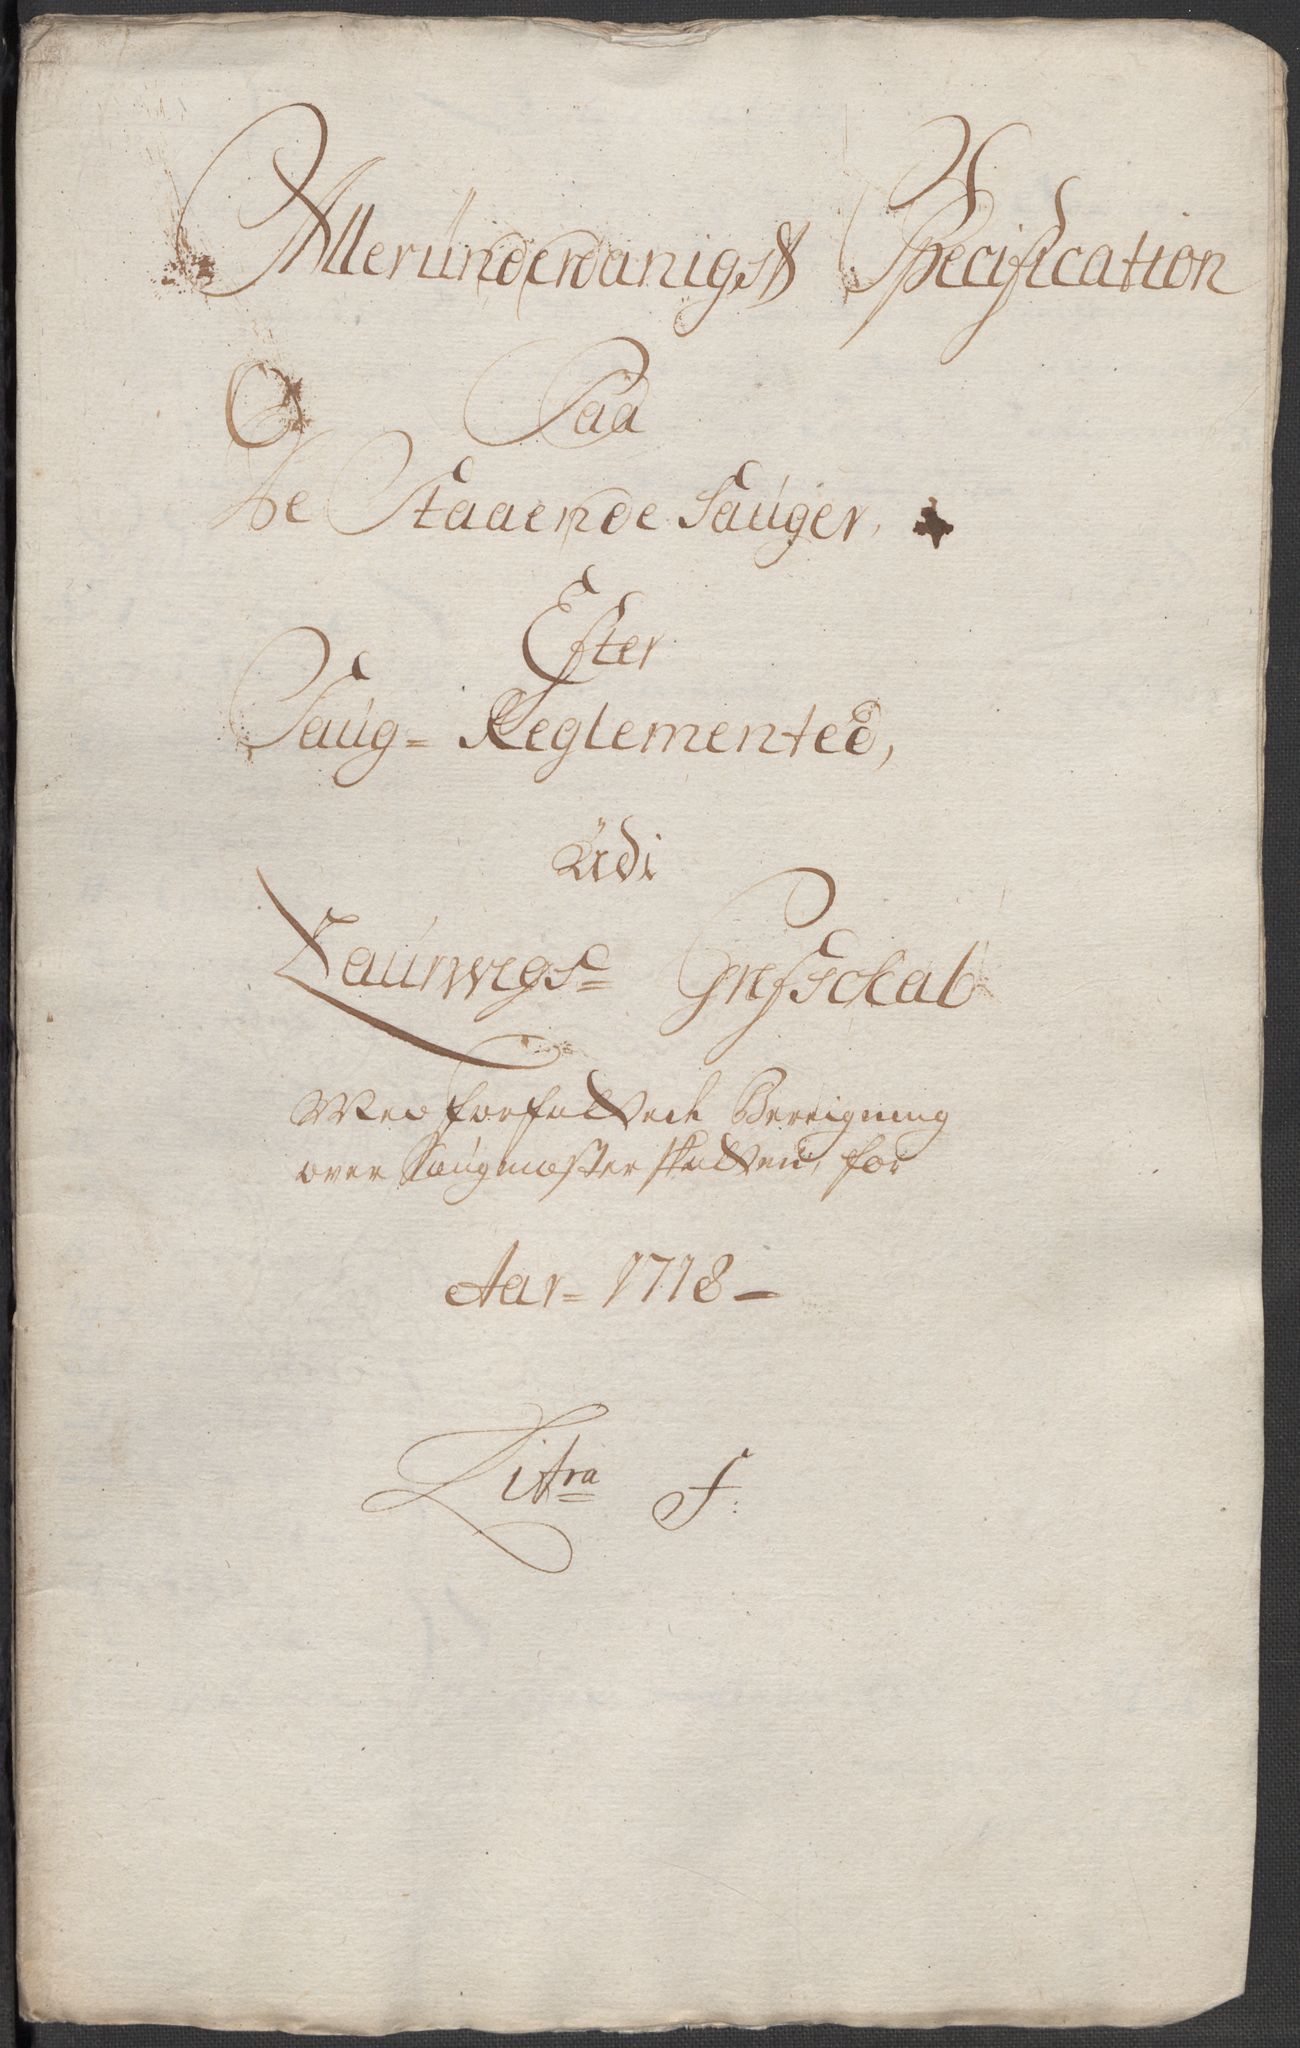 Allerunderdanigst Specification
Paa
De Staaende Sauger,
Efter
Saug= Reglemented,
Udi
Laurwigs= Grefsckab
Med forfatted Beregning
over Saugmester skatten, for
Aar= 1718 –
Litra F: